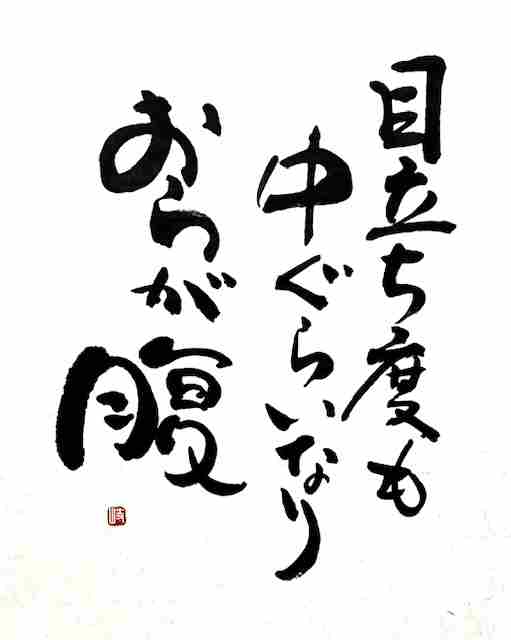 目立ち度も
中ぐらいなり
おらが腹